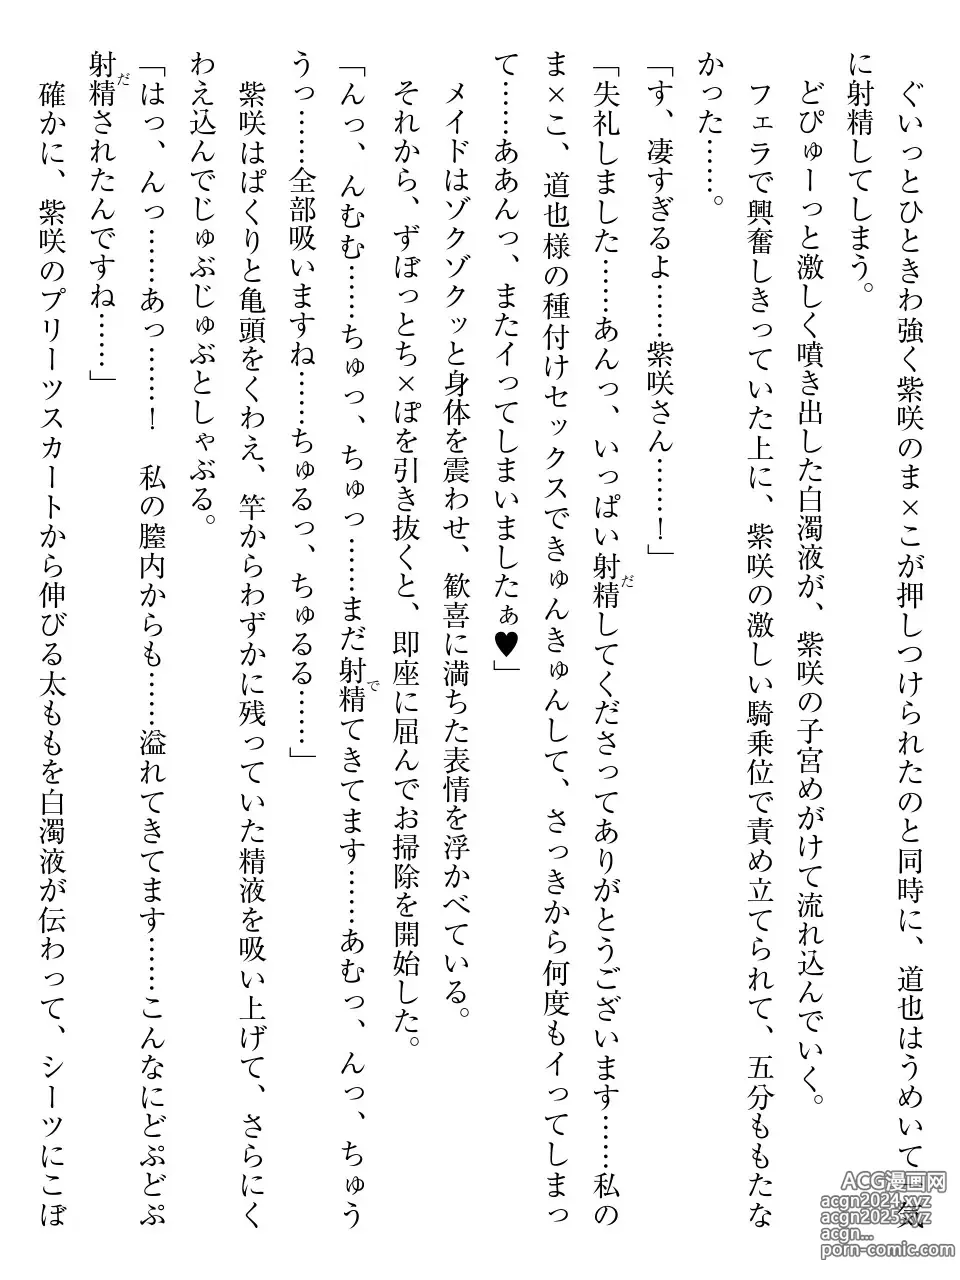 ぐいっとひときわ強く紫咲のま×こが押しつけられたのと同時に、道也はうめいて一気
に射精してしまう。
どぴゅーっと激しく噴き出した白濁液が、紫咲の子宮めがけて流れ込んでいく。
フェラで興奮しきっていた上に、紫咲の激しい騎乗位で責め立てられて、五分ももたな
かった……。
「す、凄すぎるよ……紫咲さん……！」
「失礼しました……あんっ、いっぱい射精してくださってありがとうございます……私の
ま×こ、道也様の種付けセックスできゅんきゅんして、さっきから何度もイってしまっ
て……ああんっ、またイってしまいましたぁ♥」
メイドはゾクゾクッと身体を震わせ、歓喜に満ちた表情を浮かべている。
それから、ずぼっとち×ぽを引き抜くと、即座に屈んでお掃除を開始した。
「んっ、んむむ……ちゅっ、ちゅっ……まだ射精てきてます……あむっ、んっ、ちゅう
うっ……全部吸いますね……ちゅるっ、ちゅるる……」
紫咲はぱくりと亀頭をくわえ、竿からわずかに残っていた精液を吸い上げて、さらにく
わえ込んでじゅぶじゅぶとしゃぶる。
「はっ、んっ……あっ……！　私の膣内からも……溢れてきてます……こんなにどぷどぷ
射精されたんですね……」
確かに、紫咲のプリーツスカートから伸びる太ももを白濁液が伝わって、シーツにこぼ
ACG漫画网
acgn2024.xyz
acgn2025.xyz
acgn...
porn-comic.com